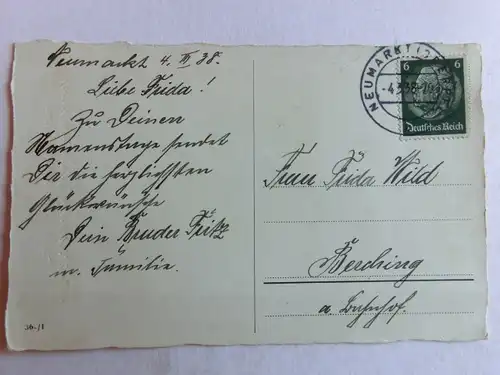 Neumarkt 4. III 38.
Liebe Frida!
Zu Deinem
Namenstage sendet
Dir die herzlichsten
Glückwünsche
Dein Bruder Fritz
m. Familie.
NEUMARKT (
-4.3.38
6 6
Deutsches Reich
Frau Frida Wild
Berching
a. Bahnhof.